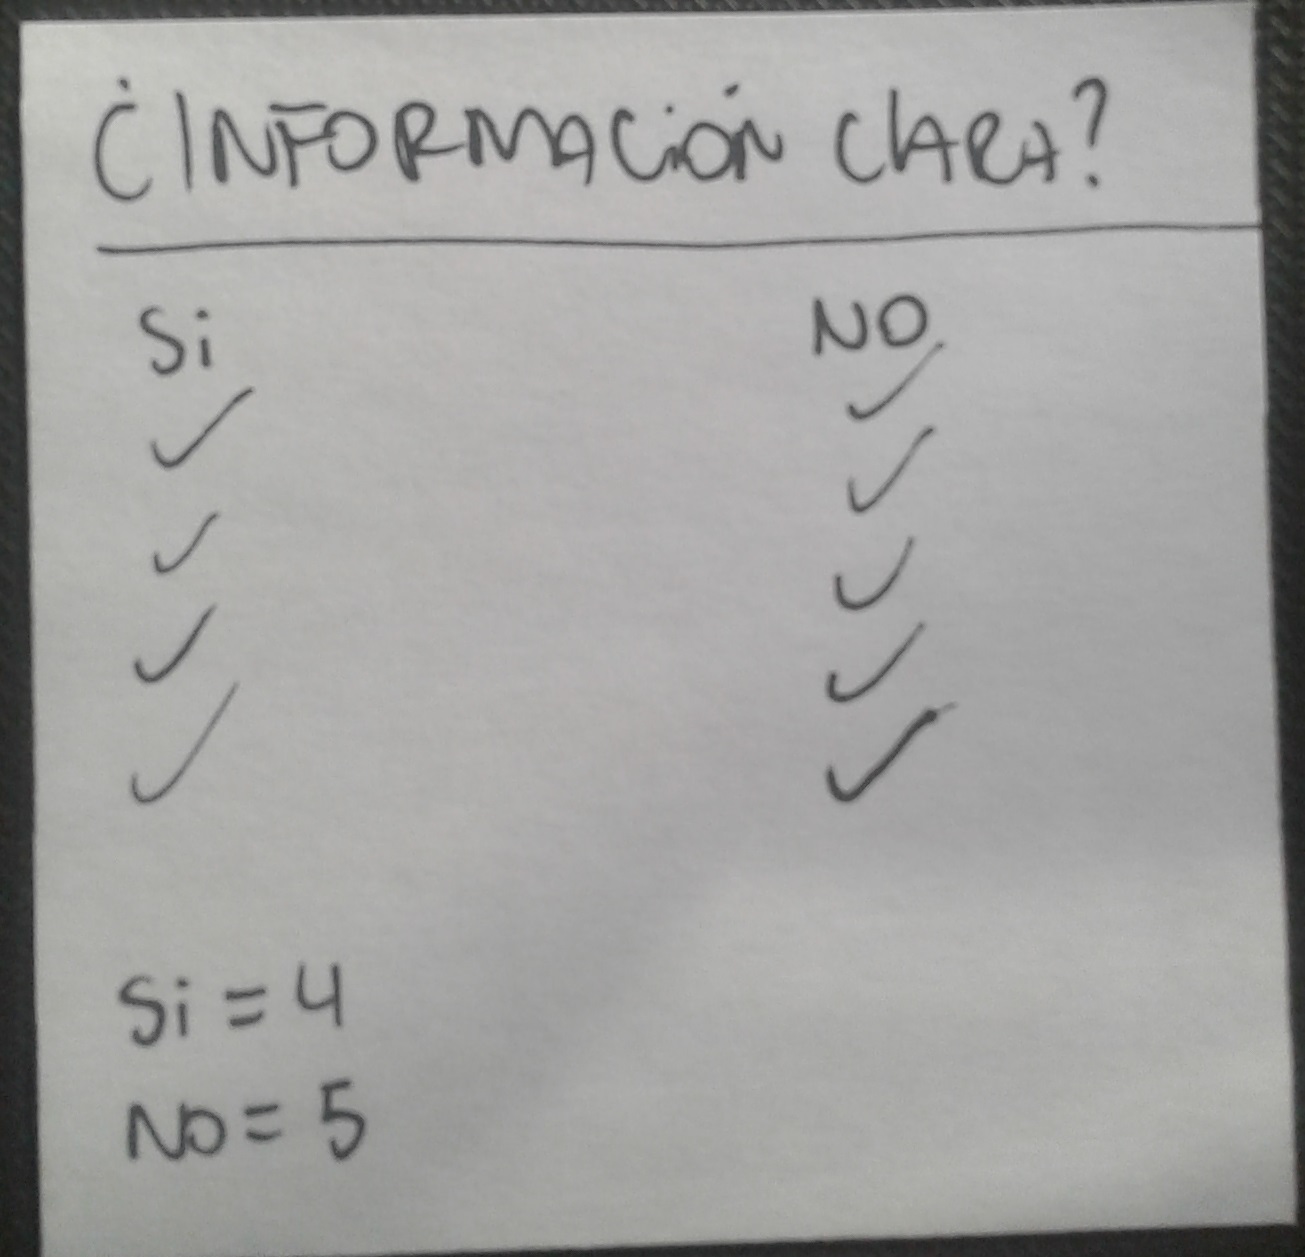 ¿INFORMACIÓN CLARA?
Si NO
✓ ✓
✓ ✓
✓ ✓
✓ ✓
✓
Si = 4
No = 5